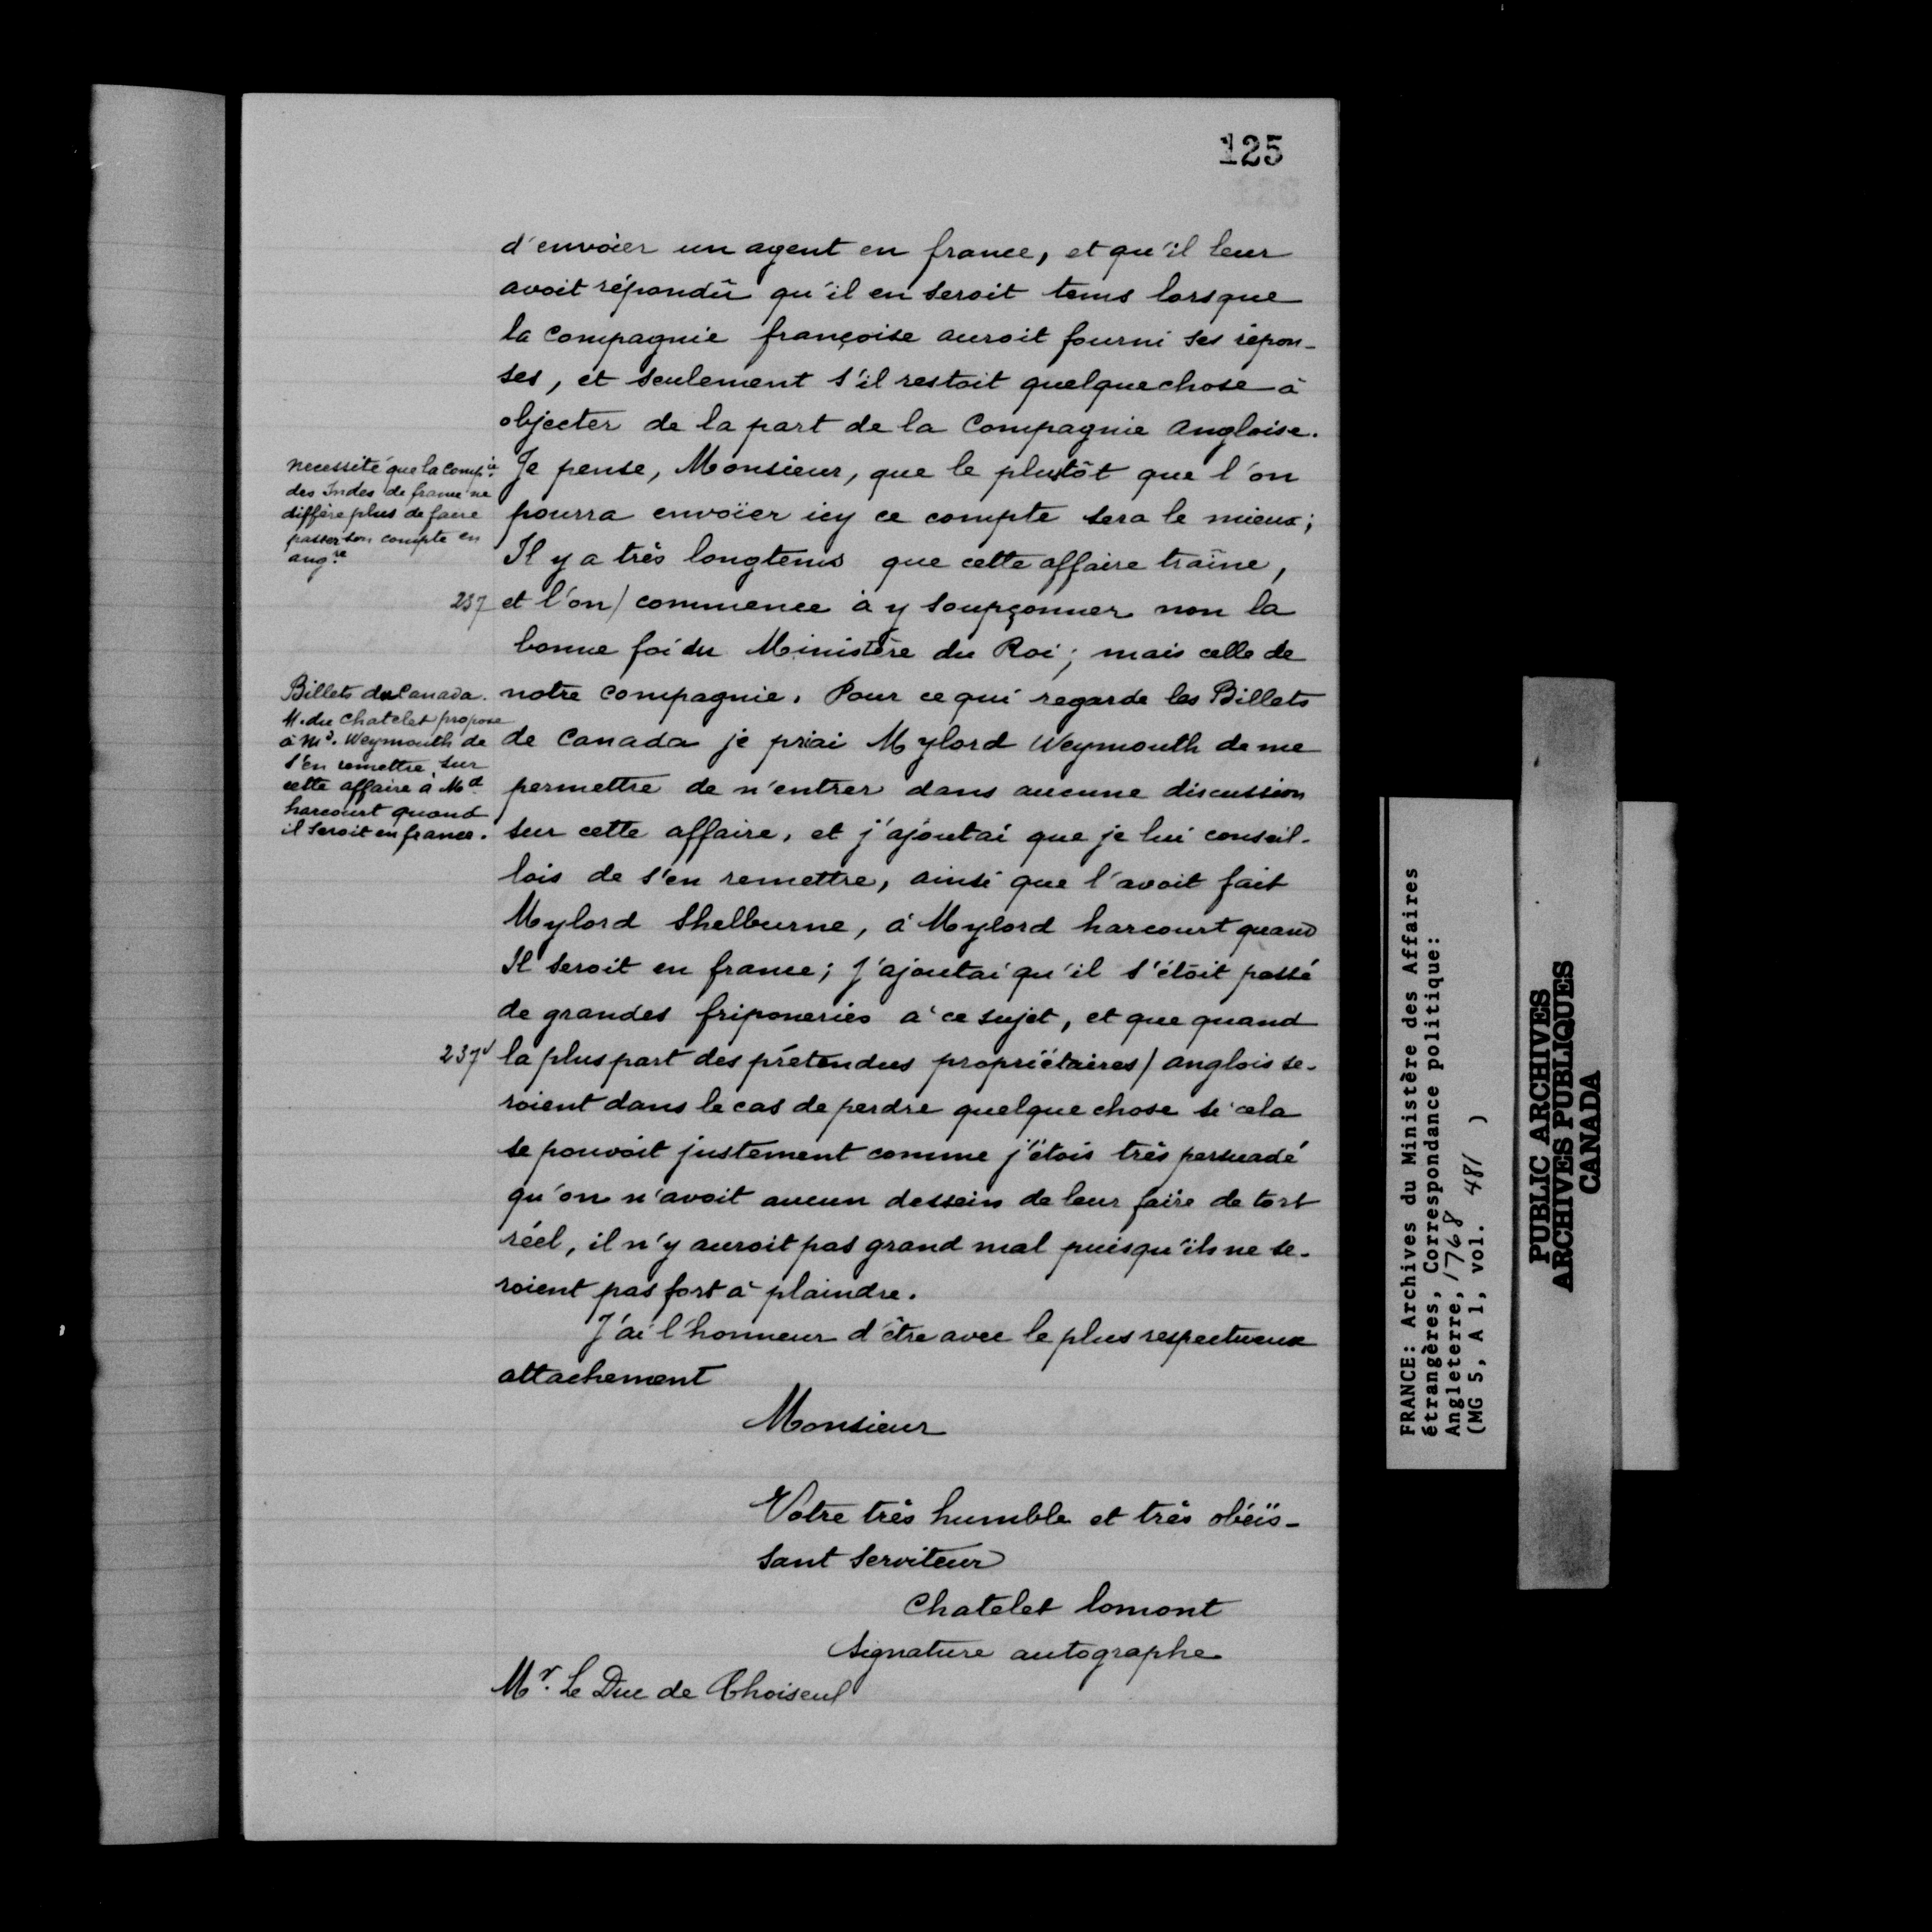 125
d'envoïer un agent en france, et qu'il leur
avoit répondû qu'il en seroit tems lorsque
la Compagnie françoise auroit fourni ses répon-
ses, et seulement s'il restoit quelquechose à
objecter de la part de la Compagnie Angloise.
necessité que la Comp.ie
des Indes de france ne
diffère plus de faire
passer son compte en
ang.re
Je pense, Monsieur, que le plustôt que l'on
pourra envoïer icy ce compte sera le mieux;
Il y a très longtems que cette affaire traîne,
237 et l'on / commence à y soupçonner non la
bonne foi du Ministère du Roi; mais celle de
Billets du Canada.
M. du Chatelet propose
à Md. Weymouth de
s'en remettre sur
cette affaire à Md
harcourt quand
il seroit en france.
notre Compagnie. Pour ce qui regarde les Billets
de Canada je priai Mylord Weymouth de me
permettre de n'entrer dans aucune discussion
sur cette affaire, et j'ajoutai que je lui conseil-
lois de s'en remettre, ainsi que l'avoit fait
Mylord Shelburne, à Mylord harcourt quand
Il seroit en france; j'ajoutai qu'il s'étoit passé
de grandes friponeries à ce sujet, et que quand
237v la pluspart des prétendus propriétaires / anglois se-
roient dans le cas de perdre quelque chose si cela
se pouvoit justement comme j'étois très persuadé
qu'on n'avoit aucun dessein de leur faire de tort
réel, il n'y auroit pas grand mal puisqu'ils ne se-
roient pas fort à plaindre.
J'ai l'honneur d'être avec le plus respectueux
attachement
Monsieur
Votre très humble et très obéïs-
sant serviteur
Chatelet lomont
Signature autographe
Mr. Le Duc de Choiseul
FRANCE: Archives du Ministère des Affaires
étrangères, Correspondance politique:
Angleterre, 1768
(MG 5, A 1, vol. 481 )
PUBLIC ARCHIVES
ARCHIVES PUBLIQUES
CANADA